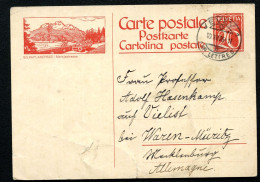 Carte postale
Postkarte
Cartolina postale
HELVETIA
LETTRES
Frau Professor
Adolf Hasenkamp
auf Vielist
bei Waren-Müritz
Mecklenburg
Allemagne